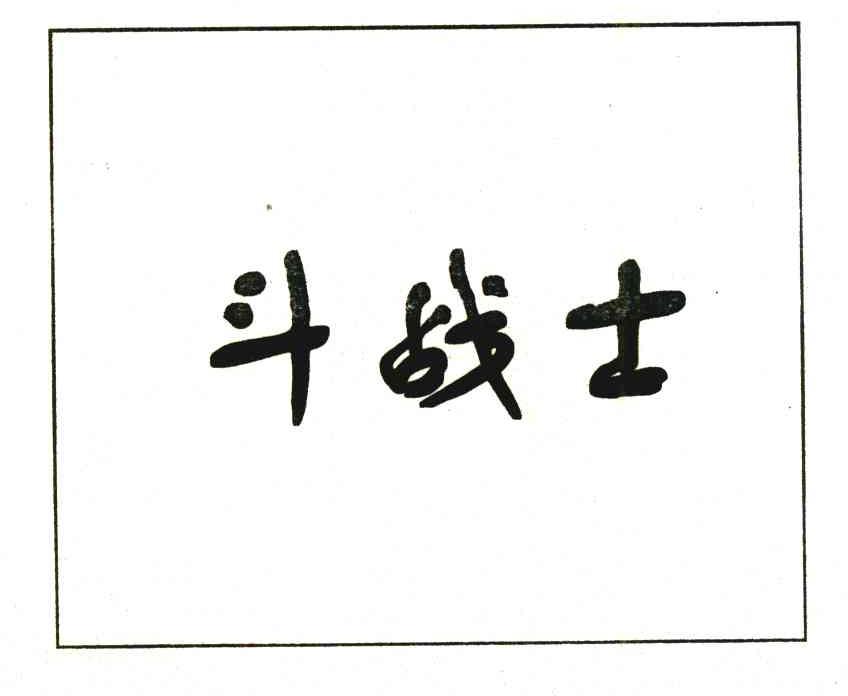 斗战士